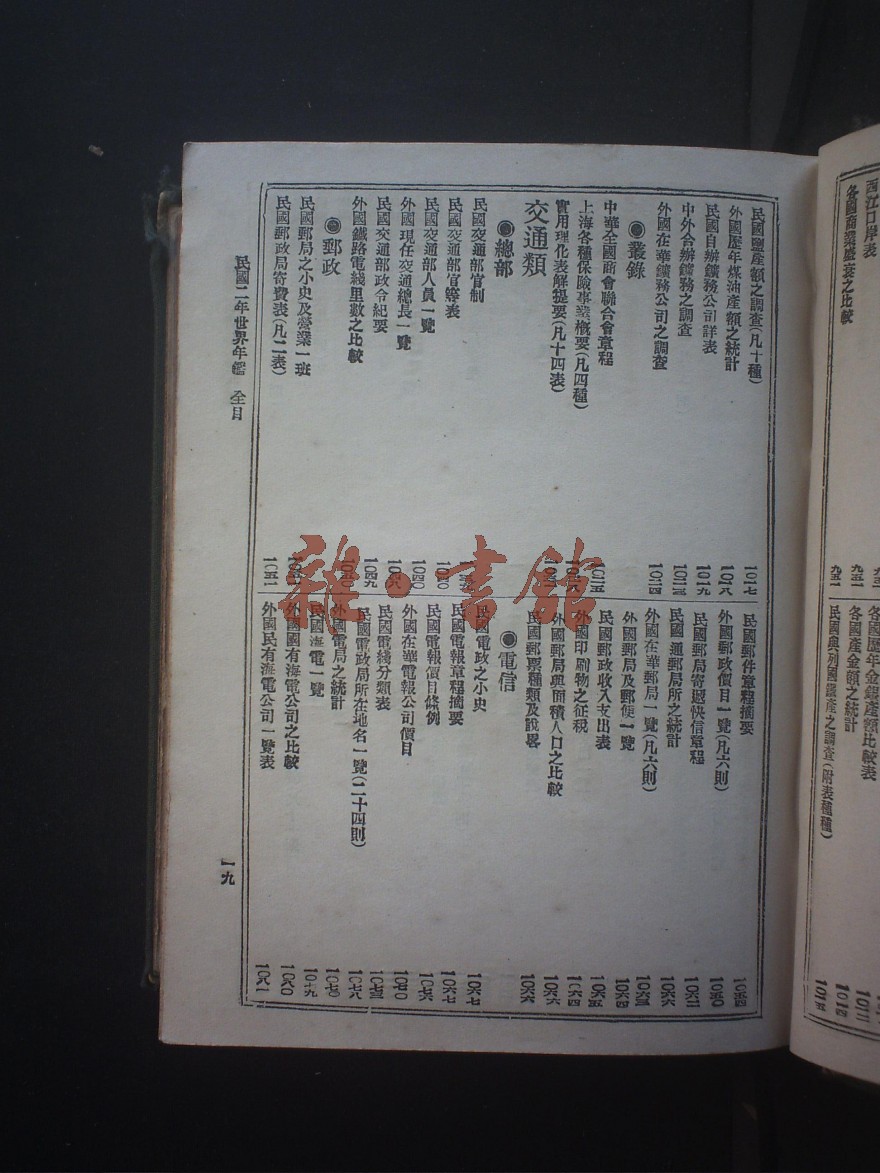 民國鹽產額之調查(凡十種)
外國歷年煤油產額之統計
民國自辦鑛務公司詳表
中外合辦鑛務之調查
外國在華鑛務公司之調查
●叢錄
中華全國商會聯合會章程
上海各種保險事業概要(凡四種)
實用理化表解提要(凡十四表)
交通類
●總部
民國交通部官制
民國交通部官等表
民國交通部人員一覽
外國現任交通總長一覽
民國交通部政令紀要
外國鐵路電綫里數之比較
●郵政
民國郵局之小史及營業一班
民國郵政局寄費表(凡二表)
一〇一七
一〇一八
一〇一九
一〇二三
一〇二四
一〇二五
一〇四〇
一〇四九
一〇五一
民國郵件章程摘要
外國郵政價目一覽(凡六則)
民國郵局寄遞快信章程
民國通郵局所之統計
外國在華郵局一覽(凡六則)
外國郵局及郵便一覽
民國郵政收入支出表
外國印刷物之征稅
外國郵局與面積人口之比較
民國郵票種類及說畧
●電信
民國電政之小史
民國電報章程摘要
民國電報價目條例
外國在華電報公司價目
民國電綫分類表
民國電政局所在地名一覽(二十四則)
外國電局之統計
民國海電一覽
外國國有海電公司之比較
外國民有海電公司一覽表
一〇五四
民國二年世界年鑑 全目
一九
西江口岸表
各國商業盛衰之比較
九五一
九五一
各國歷年金銀產額比較表
各國產金額之統計
民國與列國鐵產之調查(附表種種)
一〇一四
一〇一五
雜·書館